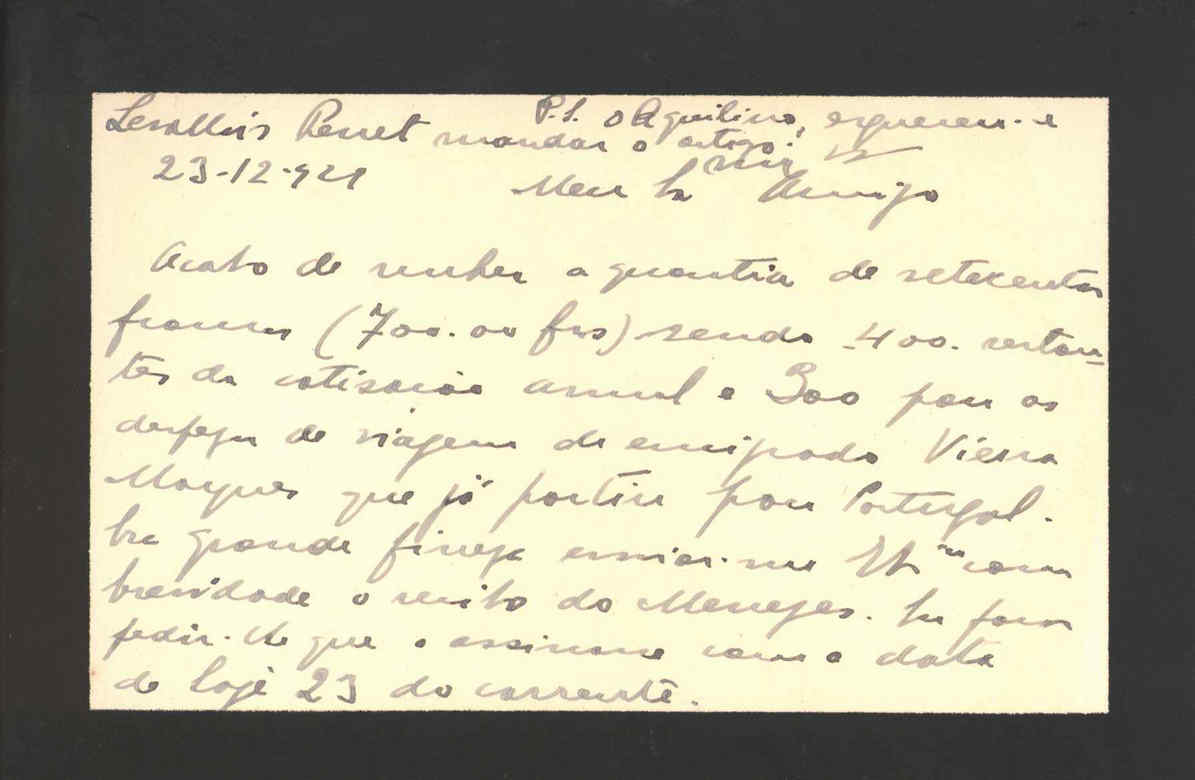 Levallois Perret
23-12-929
P.S. O Aquilino, esqueceu-se
mandar o artigo!
Meu Amigo
Acabo de receber a quantia de setecentos
francos (700.00 frs) sendo 400. restan-
tes da cotisacão annual e 300 para as
despezas de viagem do emigrado Vieira
Marques que já partiu para Portugal.
grande fineza enviar-me com
brevidade o recibo do Menezes.
pedir-lhe que o assinasse com a data
de hoje 23 do corrente.